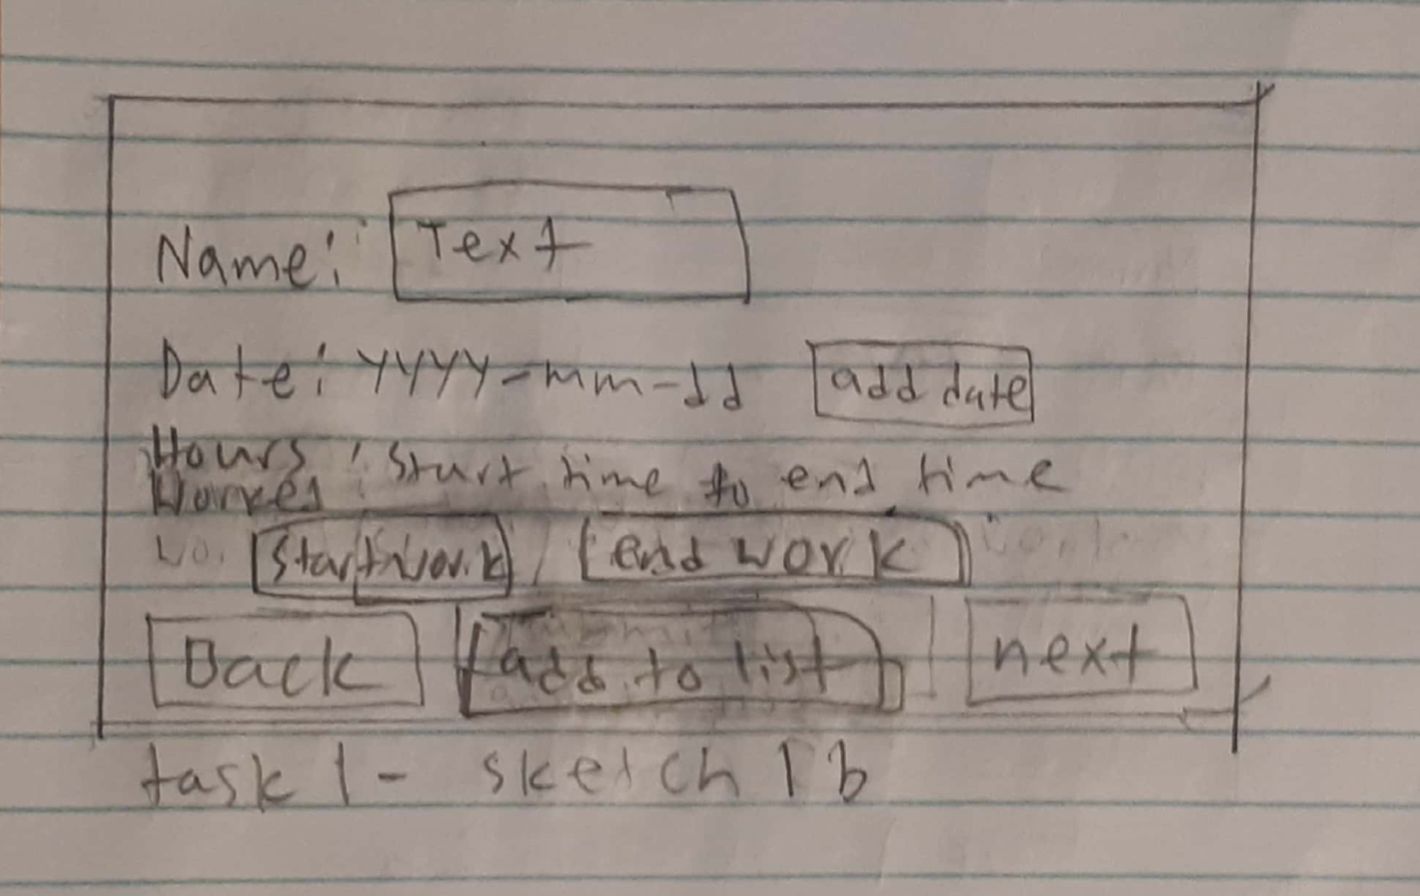 Name: Text
Date: YYYY-mm-dd add date
Hours Worked : Start time to end time
Start work end work
Back add to list next
task 1 - sketch 1b